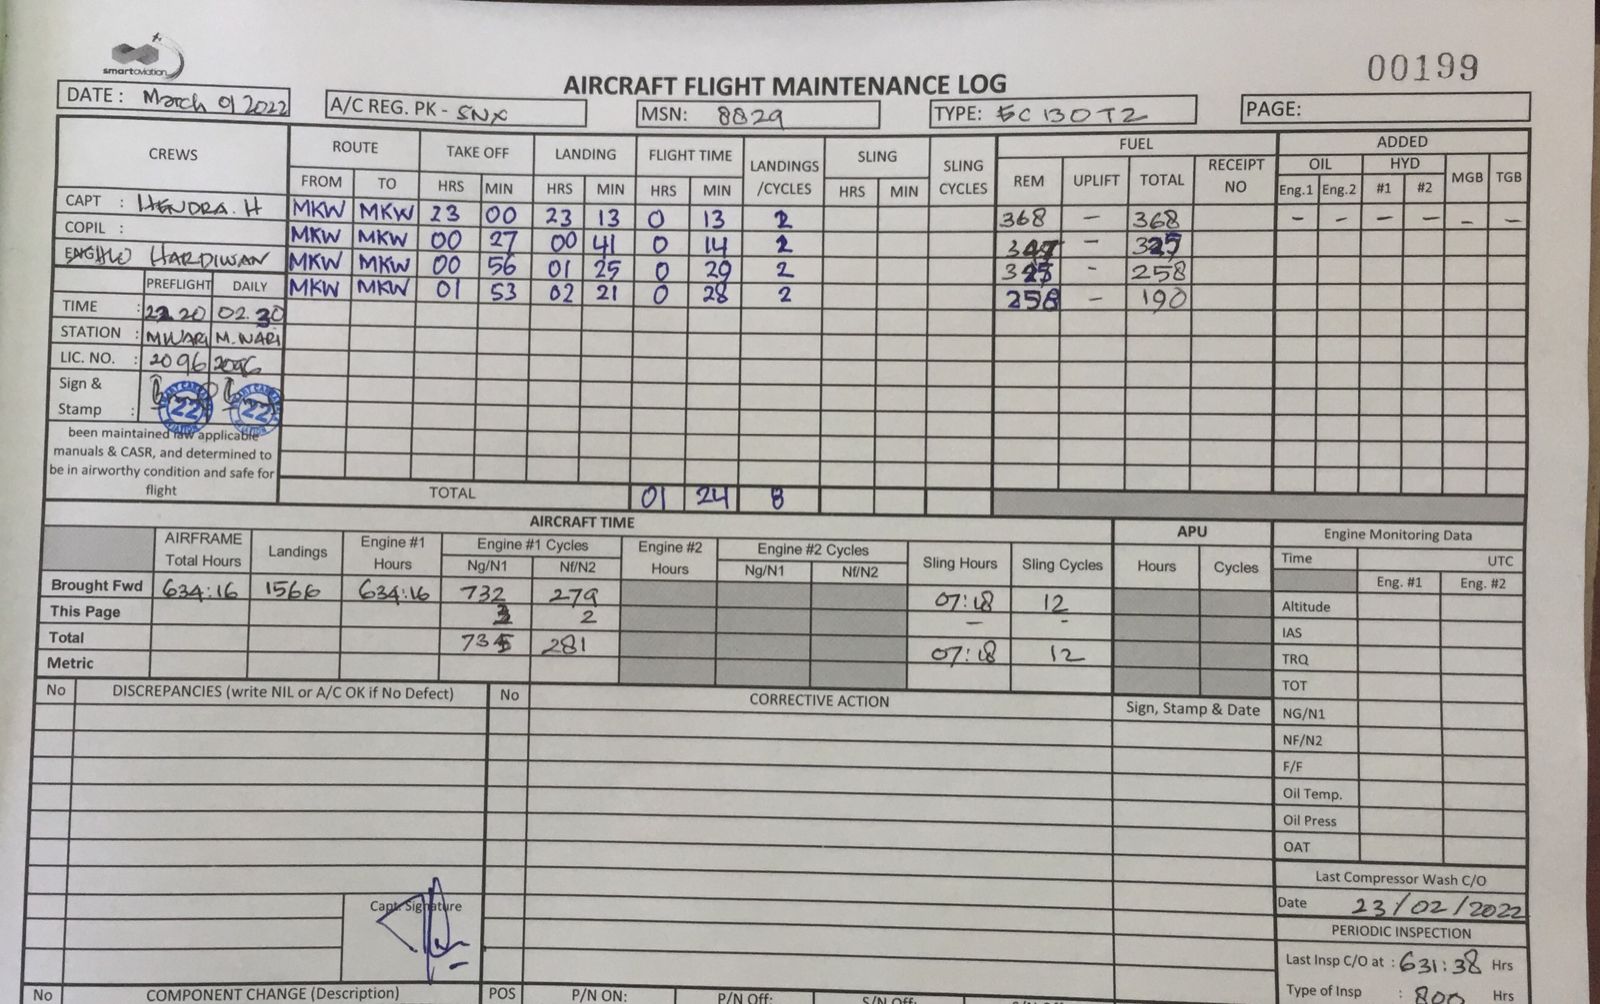 smartaviation
00199
AIRCRAFT FLIGHT MAINTENANCE LOG
DATE : March 01 2022 A/C REG. PK - SNX MSN: 8829 TYPE: EC 130 T2 PAGE:
CREWS ROUTE TAKE OFF LANDING FLIGHT TIME LANDINGS /CYCLES SLING SLING CYCLES FUEL ADDED
OIL HYD
FROM TO HRS MIN HRS MIN HRS MIN HRS MIN REM UPLIFT TOTAL RECEIPT NO Eng.1 Eng.2 #1 #2 MGB TGB
CAPT : HENDRA. H MKW MKW 23 00 23 13 0 13 2 368 – 368 – – – – – –
COPIL : MKW MKW 00 27 00 41 0 14 2 –
HARDIWAN MKW MKW 00 56 01 25 0 29 2 – 258
PREFLIGHT DAILY MKW MKW 01 53 02 21 0 28 2 258 – 190
TIME : 22.20 02.30
STATION : MWARI M.WARI
LIC. NO. : 2096 2096
Sign &
Stamp : 22 22
been maintained iaw applicable
manuals & CASR, and determined to
be in airworthy condition and safe for
flight
TOTAL 01 24 8
AIRCRAFT TIME APU Engine Monitoring Data
AIRFRAME Total Hours Landings Engine #1 Hours Engine #1 Cycles Engine #2 Hours Engine #2 Cycles Sling Hours Sling Cycles Hours Cycles Time UTC
Ng/N1 Nf/N2 Ng/N1 Nf/N2 Eng. #1 Eng. #2
Brought Fwd 634:16 1566 634:16 732 279 07:18 12 Altitude
This Page 3 2 – – IAS
Total 735 281 07:18 12 TRQ
Metric TOT
No DISCREPANCIES (write NIL or A/C OK if No Defect) No CORRECTIVE ACTION Sign, Stamp & Date NG/N1
NF/N2
F/F
Oil Temp.
Oil Press
OAT
Last Compressor Wash C/O
Capt. Signature Date 23/02/2022
PERIODIC INSPECTION
Last Insp C/O at : 631:38 Hrs
No COMPONENT CHANGE (Description) POS P/N ON: P/N Off: S/N Off: Type of Insp : 800 Hrs